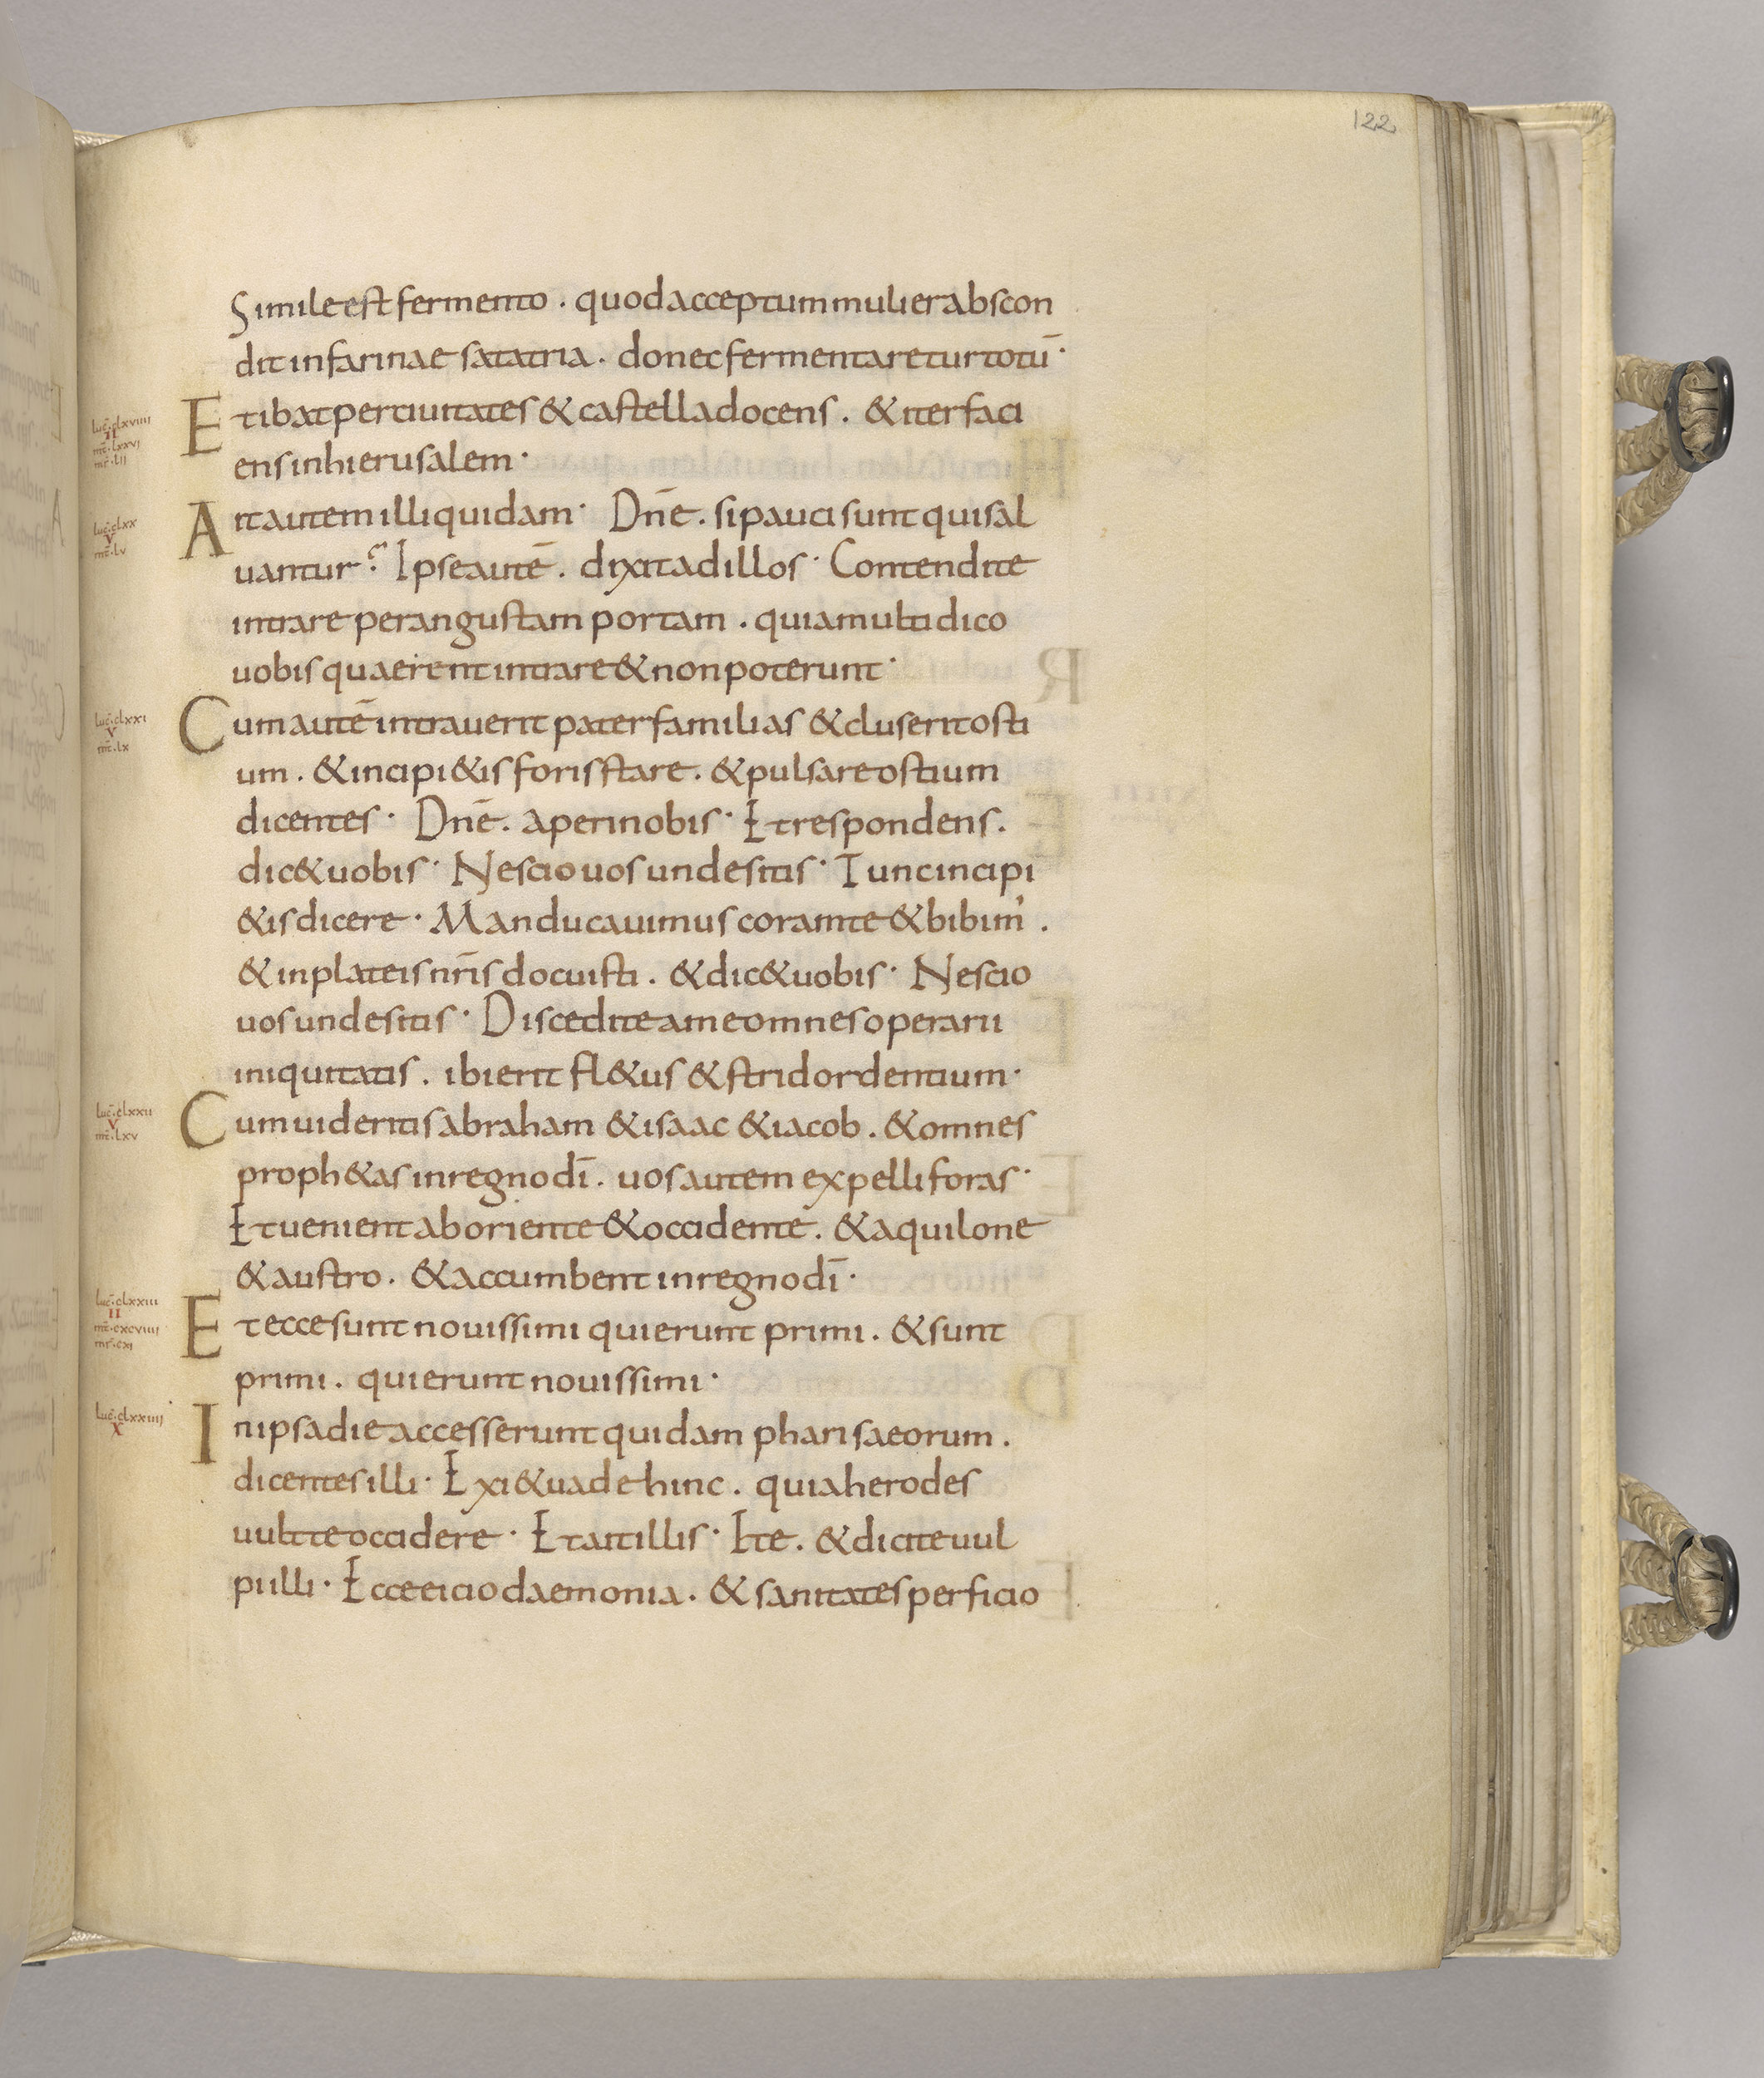 122
Simile est fermento . quod acceptum mulier abscon
dit in farinae sata tria . donec fermentaretur totū ·
luc̄ · clxviiii
II
mt̄ · lxxvi
mr̄ · lii
Et ibat per ciuitates & castella docens . & iter faci
ens in hierusalem ·
luc̄ · clxx
V
mt̄ · lv
Ait autem illi quidam · Dn̄e . si pauci sunt qui sal
uantur ? Ipse autē . dixit ad illos · Contendite
intrare per angustam portam . quia multi dico
uobis quaerent intrare & non poterunt ·
luc̄ · clxxi
V
mt̄ · lx
Cum autē intrauerit pater familias & cluserit osti
um . & incipi&is foris stare . & pulsare ostium
dicentes · Dn̄e . aperi nobis · Et respondens .
dic& uobis · Nescio uos unde sitis · Tunc incipi
&is dicere · Manducauimus coram te & bibim' .
& in plateis nr̄is docuisti . & dic& uobis · Nescio
uos unde sitis · Discedite a me omnes operarii
iniquitatis . ibi erit fl&us & stridor dentium ·
luc̄ · clxxii
V
mt̄ · lxv
Cum uideritis abraham & isaac & iacob . & omnes
proph&as in regno dī . uos autem expelli foras ·
Et uenient ab oriente & occidente . & aquilone
& austro . & accumbent in regno dī ·
luc̄ · clxxiii
II
mt̄ · cxcviiii
mr̄ · cxi
Et ecce sunt nouissimi qui erunt primi . & sunt
primi . qui erunt nouissimi ·
luc̄ · clxxiiii
X
In ipsa die accesserunt quidam pharisaeorum .
dicentes illi · Exi & uade hinc . quia herodes
uult te occidere · Et ait illis · Ite . & dicite uul
pi illi · Ecce eicio daemonia . & sanitates perficio